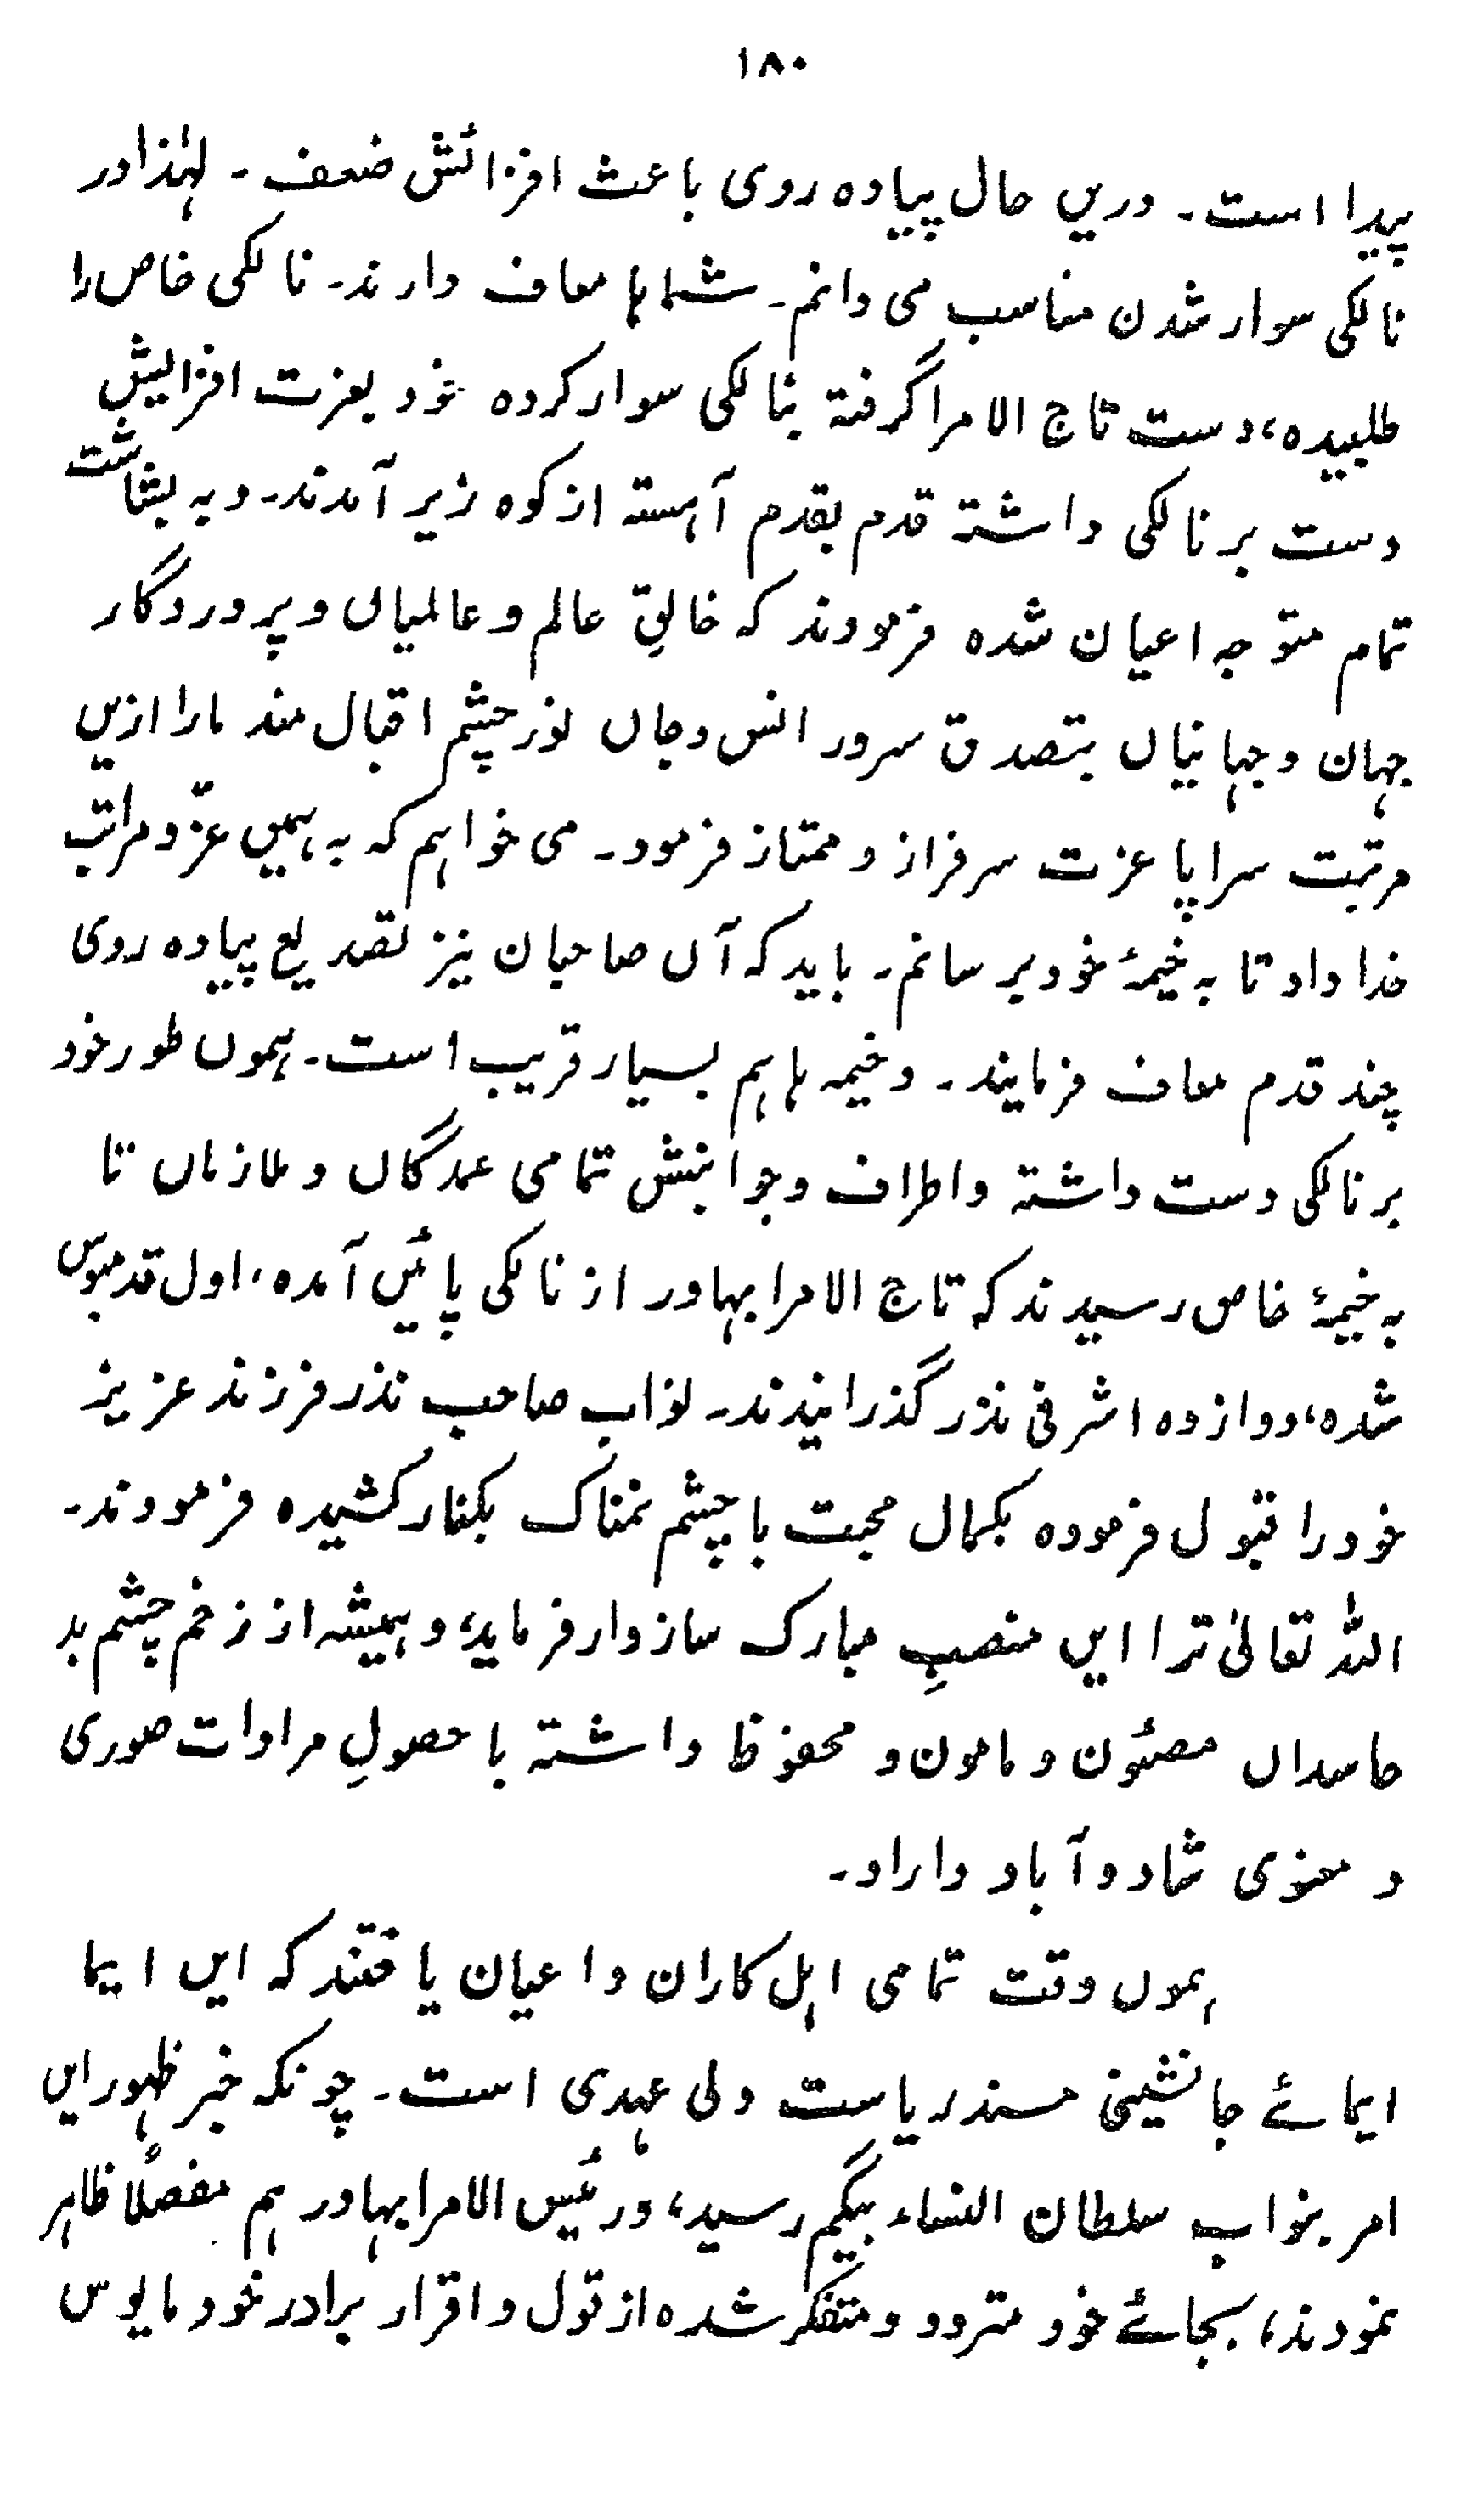 ۱۸۰
پیدا است۔ دریں حال پیادہ روی باعث افزائش ضعف۔ لہٰذا در
نالکی سوار شدن مناسب می دانم۔ شمایاں معاف دارند۔ نالکی خاص را
طلبیدہ، دست تاج الامرا گرفتہ بنالکی سوار کردہ خود بعزت افزائیش
دست برنالکی داشتہ قدم بقدم آہستہ از کوہ زیر آمدند۔ وبہ بشاشت
تمام متوجہ اعیان شدہ فرمودند کہ خالقِ عالم و عالمیاں و پروردگار
جہان و جہانیاں بتصدق سرور انس و جاں نورچشم اقبال مند مارا ازیں
مرتبت سراپا عزت سرفراز و ممتاز فرمود۔ می خواہم کہ بہ ہمیں عزّ و مراتب
خداداد تا بہ خیمۂ خود برسانم۔ باید کہ آں صاحبان نیز تصدیع پیادہ روی
چند قدم معاف فرمایند۔ وخیمہ ہاہم بسیار قریب است۔ ہموں طور خود
برنالکی دست داشتہ واطراف وجوانبش تمامی عمدگاں و ملازماں تا
بہ خیمۂ خاص رسیدند کہ تاج الامرا بہادر از نالکی پائیں آمدہ، اول قدمبوس
شدہ، دوازدہ اشرفی نذر گذرانیدند۔ نواب صاحب نذر فرزند عزیز
خود را قبول فرمودہ بکمال محبت باچشم نمناک بکنار کشیدہ فرمودند۔
اللہ تعالیٰ ترا ایں منصبِ مبارک سازوار فرماید، و ہمیشہ از زخم چشم بد
حاسداں مصئون و مامون و محفوظ داشتہ با حصولِ مرادات صوری
و معنوی شاد و آباد داراد۔
ہموں وقت تمامی اہل کاران و اعیان یافتند کہ ایں ایما
ایمائے جانشینی مسند ریاست ولی عہدی است۔ چونکہ خبر ظہور ایں
امر بنواب سلطان النساء بیگم رسید، ورئیس الامرا بہادر ہم مفصلًا ظاہر
نمودند، بجائے خود متردد و متفکر شدہ از قول و اقرار برادر خود مایوس